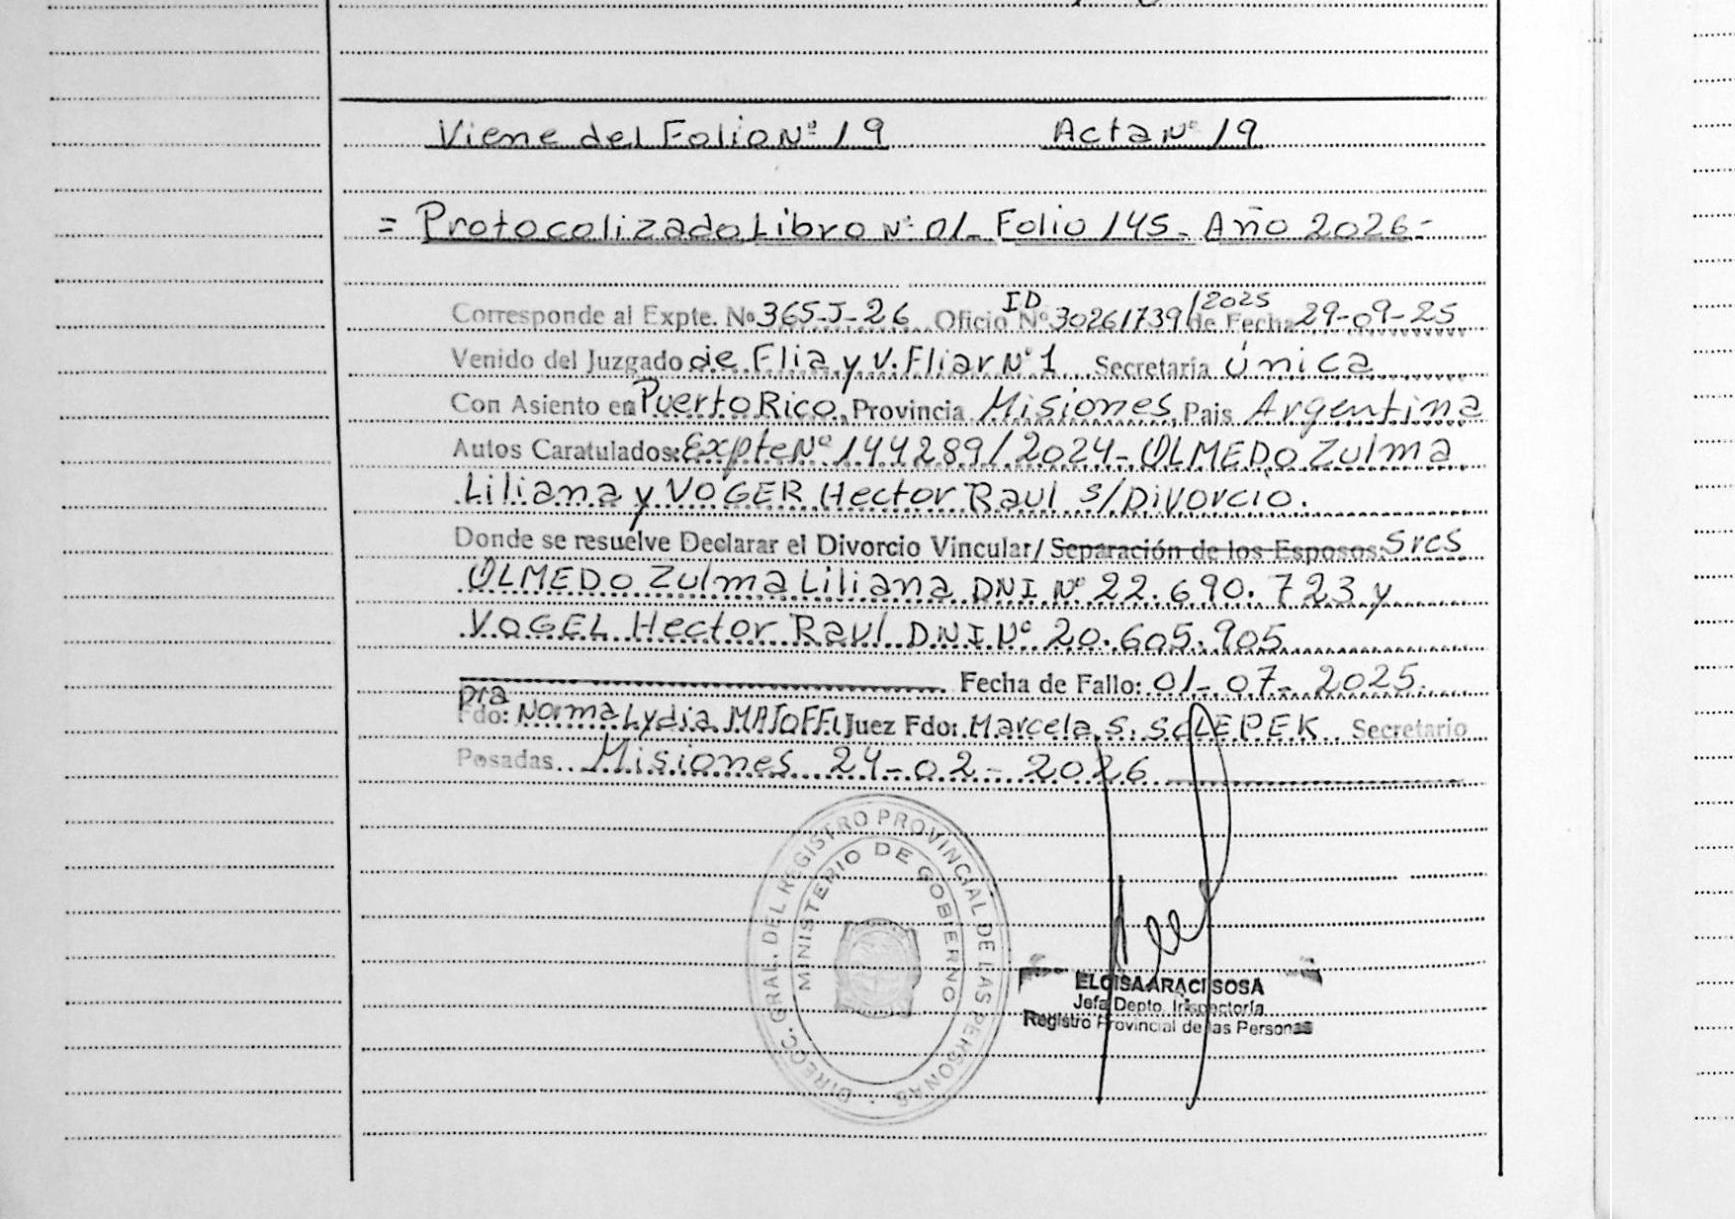 Viene del Folio Nº 19 Acta Nº 19
= Protocolizado Libro Nº 01_ Folio 145_ Año 2026-
Corresponde al Expte. Nº 365-J-26 Oficio ID Nº 30261739/2025 de Fecha 29-09-25
Venido del Juzgado de Flia y V. Fliar Nº 1 Secretaría Única
Con Asiento en Puerto Rico Provincia Misiones País Argentina
Autos Caratulados: Expte Nº 144289/2024- OLMEDO Zulma
Liliana y VOGER Hector Raul s/Divorcio.
Donde se resuelve Declarar el Divorcio Vincular/ Separación de los Esposos: Sres
OLMEDO Zulma Liliana DNI Nº 22.690.723 y
VOGEL Hector Raul DNI Nº 20.605.905
Fecha de Fallo: 01-07-2025.
pra
Fdo: Norma Lydia Juez Fdo: Marcela S. SCLEPEK Secretario
Posadas Misiones 24-02-2026
DIRECC. GRAL. DEL REGISTRO PROVINCIAL DE LAS PERSONAS
MINISTERIO DE GOBIERNO
ELOISA ARACI SOSA
Jefa Depto. Inspectoría
Registro Provincial de las Personas